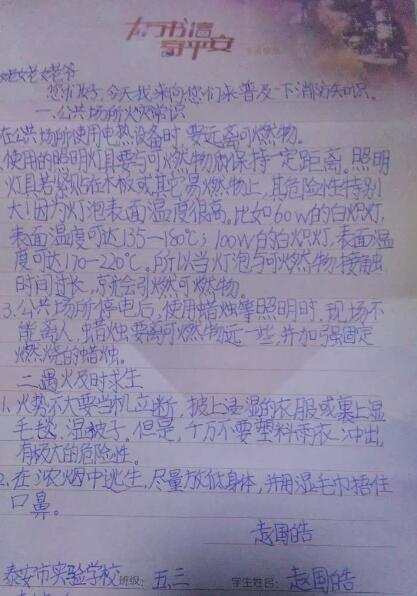 万千书信
寄平安
姥姥姥爷
您们好，今天我来向您们来普及一下消防知识。
一、公共场所火灾常识
在公共场所使用电热设备时要远离可燃物。
使用的照明灯具要与可燃物保持一定距离。照明
灯具若紧贴在木板或其它易燃物上，其危险性特别
大！因为灯泡表面温度很高。比如60W的白炽灯，
表面温度可达135—180℃；100W的白炽灯，表面温
度可达170—220℃。所以当灯泡与可燃物接触
时间过长，就会引燃可燃物。
3.公共场所停电后，使用蜡烛等照明时，现场不
能离人，蜡烛要离可燃物远一些，并加强固定
燃烧的蜡烛。
二、遇火及时求生
1、火势不大要当机立断，披上浸湿的衣服或裹上湿
毛毯、湿被子。但是，千万不要塑料雨衣冲出，
有极大的危险性。
2、在浓烟中逃生，尽量放低身体，并用湿毛巾捂住
口鼻。
赵国皓
泰安市实验学校 班级：五、三 学生姓名：赵国皓